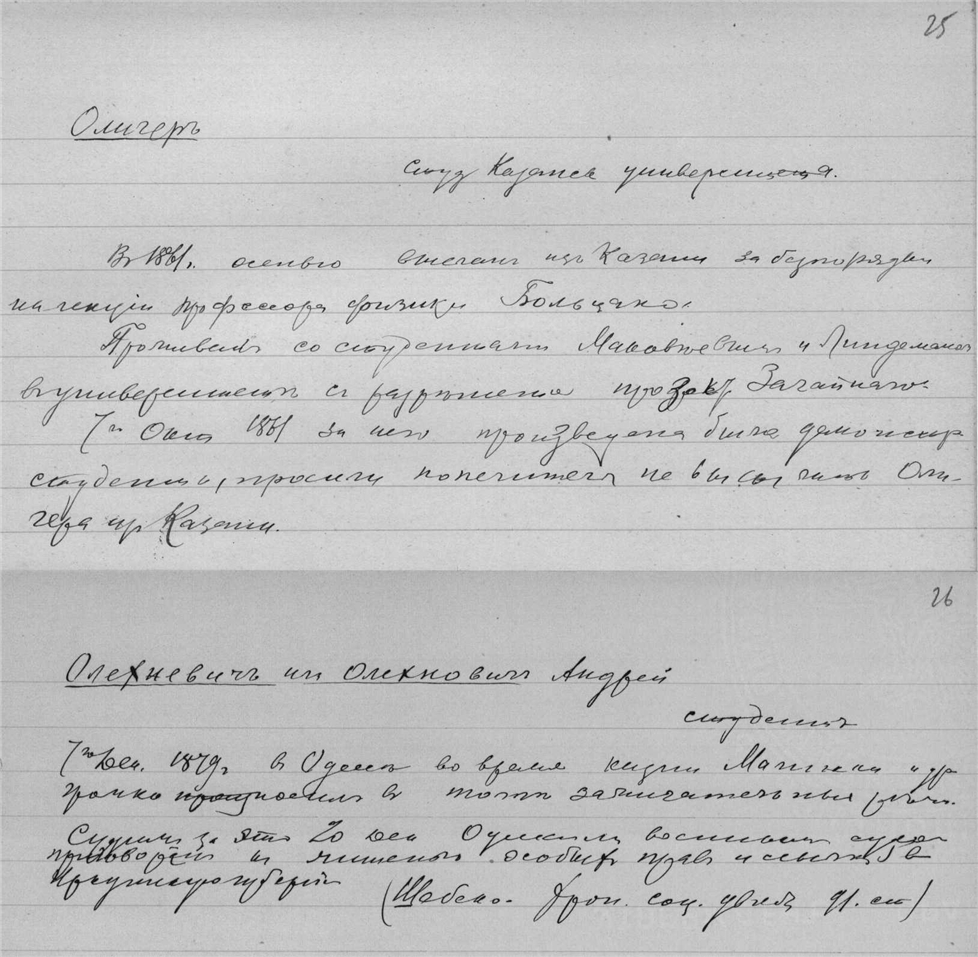 25
Олигеръ
студ Казанск университета.
Въ 1861г. осенью выслан изъ Казани за безпорядки
на лекціи профессора физики Больцано.
Проживалъ со студентами Маковъевымъ и Линдеманом
въ университетъ съ разрѣшенія
7го Окт 1861 за него произведена была демонстр
студенты, просили попечителя не высылать Оли-
гера изъ Казани.
26
Олехневичъ или Олехновичъ Андрей
студентъ
7го Дек. 1879г въ Одессѣ во время казни Малинки и др
громко въ толпѣ
Судимъ за это 20 Дек Одесскимъ военнымъ судом
къ лишенію особых правъ и ссылкѣ в
Иркутскую губерній
(Шебеко. Хрон. соц. движ 91. ст)